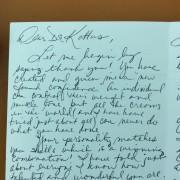 Dear Dr. Kottus,
Let me begin by
saying thank you! You have
created and given me a new
found confidence. An individual
can workoff their weight and
muscle tone, but all the creams
in the world (and I have have
tried most of all) can never do
what you have done.
Your personality matches
your skills which is a winning
combination! I have told just
about everyone I know how
talented and wonderful you are.